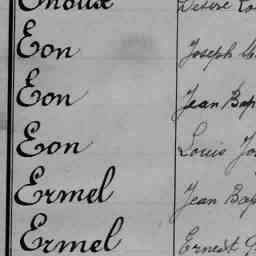 Eon Joseph
Eon Jean Bap
Eon Louis
Ermel Jean Bap
Ermel Ernest